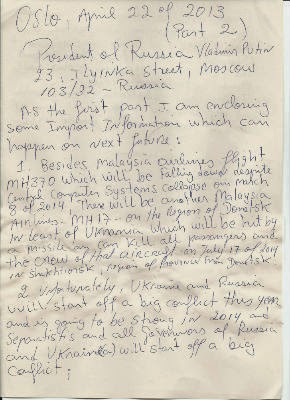 Oslo, April 22 of 2013
(Part 2)
President of Russia Vladimir Putin
23, Ilyinka Street, Moscow
103132 - Russia
As the first part I am enclosing
some Import Information which can
happen on next future:
1. Besides Malaysia Airlines flight
MH370 which will be falling down despite
Central Computer Systems collapse on March
8 of 2014. There will be another Malaysia
Airlines - MH17 - on the Region of Donetsk
in East of Ukrania which will be hit by
a missile in can kill all passengers and
the crew of that aircraft on July 17 of 2014
in Shakhtiorsk, region of province from Donetsk
2. Unfortunately, Ukraine and Russia
will start off a big conflict this year
and is going to be strong in 2014, and
Separatists and all Governors of Russia
and Ukraine(a) will start off a big
conflict;